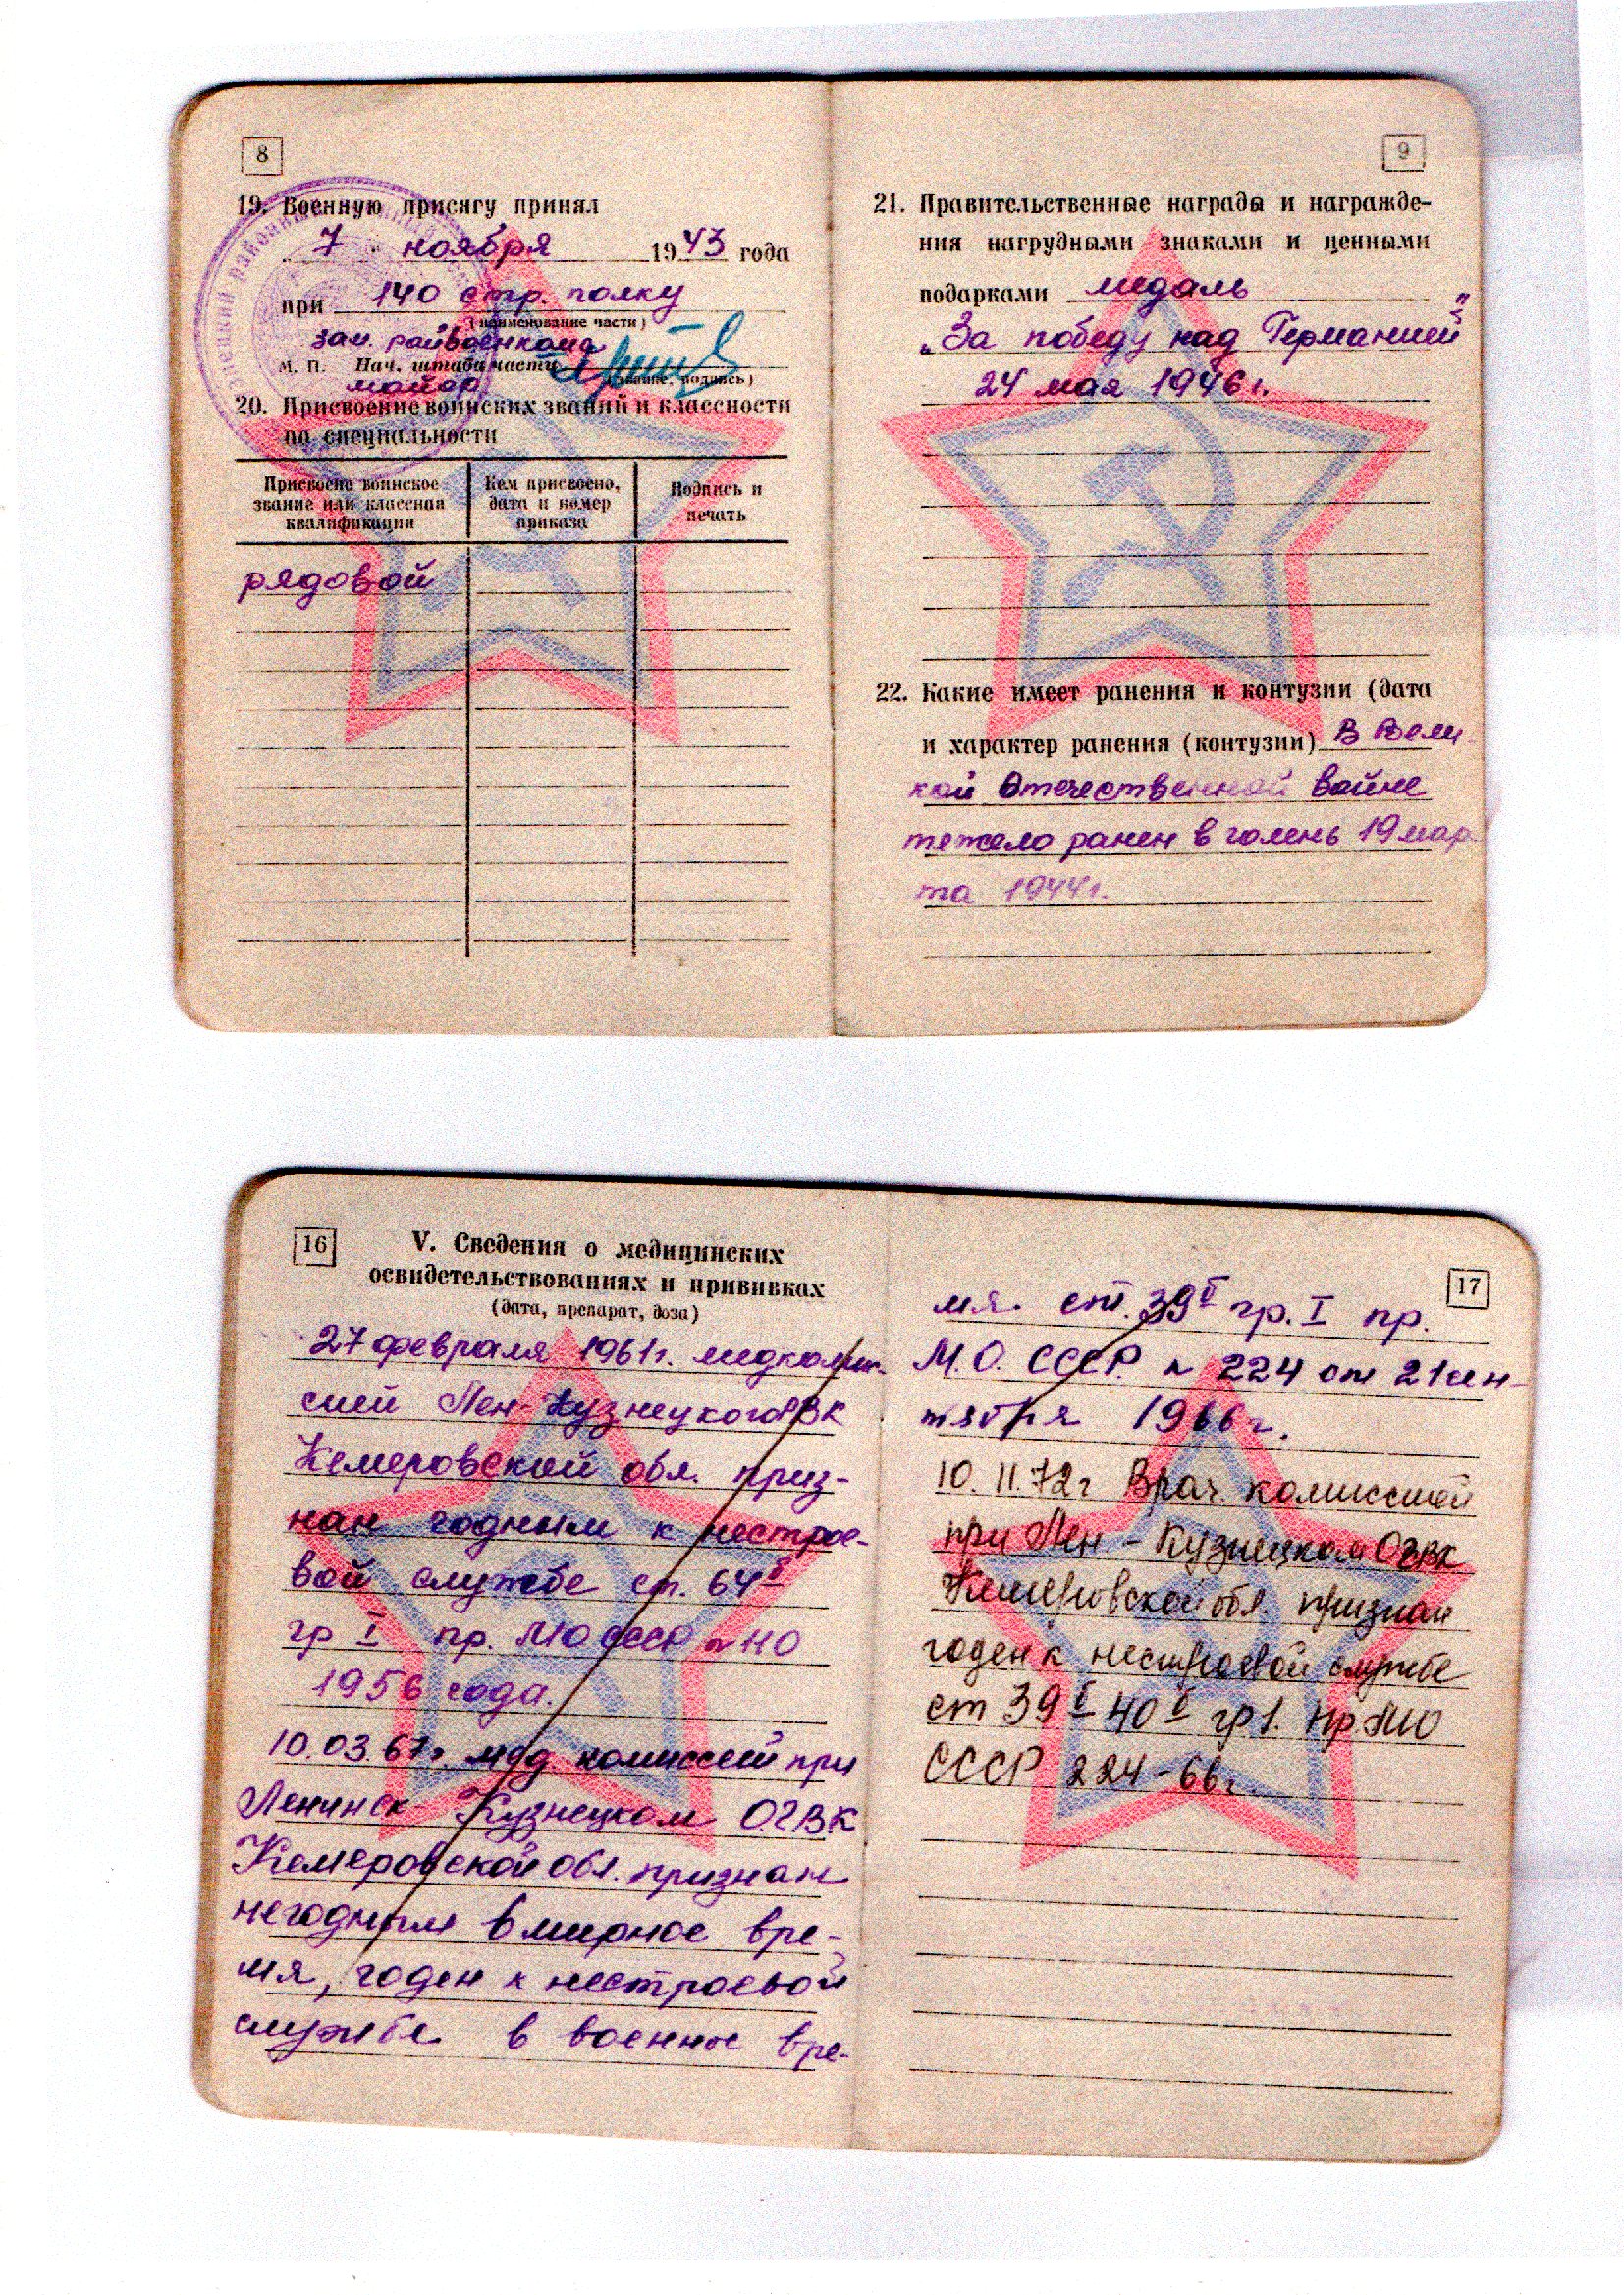 8
19. Военную присягу принял
7 ноября 1943 года
при 140 стр. полку
(наименование части)
зам. райвоенкома
М. П. Нач. штаба части
майор
подпись)
20. Присвоение воинских званий и классности
по специальности
Присвоено воинское звание или классная квалификация
Кем присвоено, дата и номер приказа
Подпись и печать
рядовой
9
21. Правительственные награды и награжде-
ния нагрудными знаками и ценными
подарками медаль
„За победу над Германией"
24 мая 1946 г.
22. Какие имеет ранения и контузии (дата
и характер ранения (контузии) В Вели
кой Отечественной войне
тежело ранен в голень 19 мар
та 1944 г.
16
V. Сведения о медицинских
освидетельствованиях и прививках
(дата, препарат, доза)
27 февраля 1961 г. медкомис-
сией Лен-Кузнецкого РВК
Кемеровской обл. приз-
нан годным к нестрое-
вой службе ст. 64
гр I пр. МО СССР № 110
1956 года.
10.03.67г. мед комиссией при
Ленинск-Кузнецком ОГВК
Кемеровской обл. признан
негодным в мирное вре-
мя, годен к нестроевой
службе в военное вре-
17
мя. ст. 39 гр. I пр.
М.О. СССР № 224 от 21 сен-
тября 1966 г.
10.11.72г Врач. комиссией
при Лен-Кузнецком ОГВК
Кемеровской обл. признан
годен к нестроевой службе
ст 39 40 гр 1. Пр. МО
СССР 224-66 г.